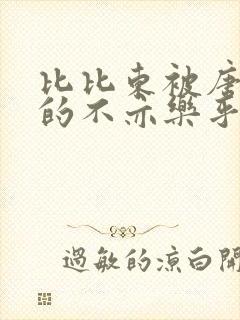 比比東被唐
的不亦樂乎
過敏的涼白開